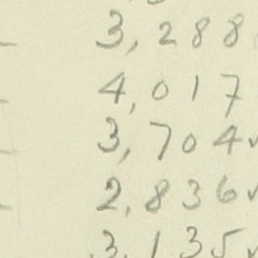 3,288
4,017
3,704✓
2,836✓
3,135✓